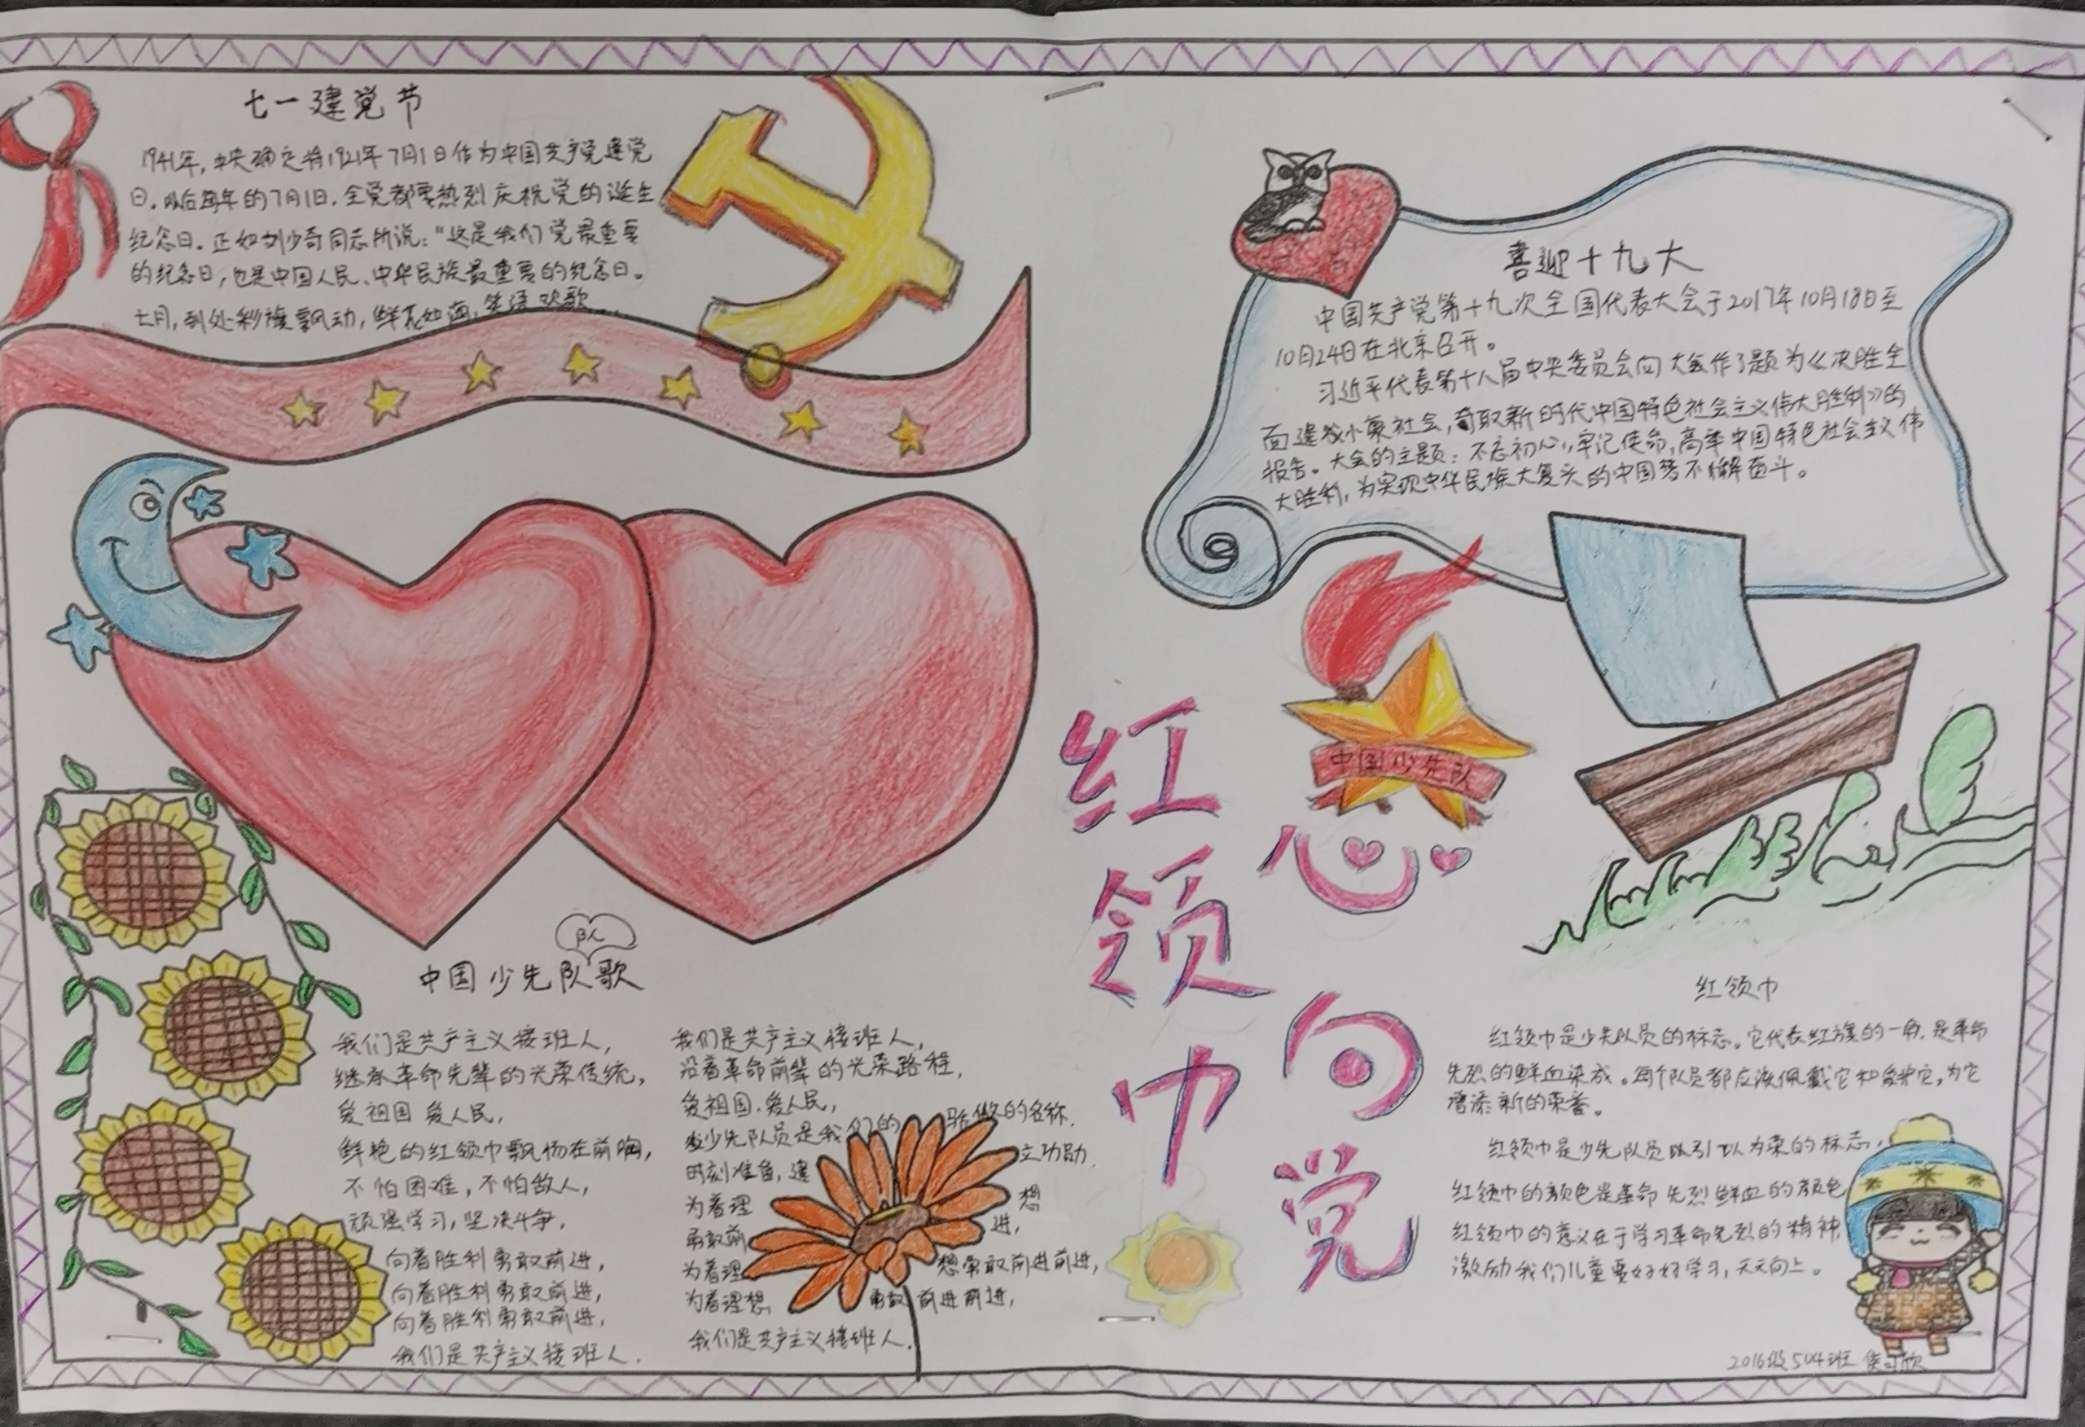 七一建党节
1941年,中央确定将1921年7月1日作为中国共产党建党
日。以后每年的7月1日,全党都要热烈庆祝党的诞生
纪念日。正如刘少奇同志所说:"这是我们党最重要
的纪念日,也是中国人民、中华民族最重要的纪念日。
七月,到处彩旗飘动,鲜花如海,笑语欢歌
中国少先队歌
队
我们是共产主义接班人,
继承革命先辈的光荣传统,
爱祖国 爱人民,
鲜艳的红领巾飘扬在前胸,
不怕困难,不怕敌人,
顽强学习,坚决斗争,
向着胜利勇敢前进,
向着胜利勇敢前进,
向着胜利勇敢前进,
我们是共产主义接班人.
我们是共产主义接班人,
沿着革命前辈的光荣路程,
爱祖国,爱人民,
少先队员是我们的 骄傲的名称.
时刻准备,建 立功勋.
为着理 想
勇敢前 进,
为着理 想勇敢前进前进,
为着理想 勇敢 前进前进,
我们是共产主义接班人.
红领巾
心向党
中国少先队
喜迎十九大
中国共产党第十九次全国代表大会于2017年10月18日至
10月24日在北京召开。
习近平代表第十八届中央委员会向大会作了题为《决胜全
面建成小康社会,夺取新时代中国特色社会主义伟大胜利》的
报告。大会的主题:不忘初心,牢记使命,高举中国特色社会主义伟
大胜利,为实现中华民族大复兴的中国梦不懈奋斗。
红领巾
红领巾是少先队员的标志。它代表红旗的一角,是革命
先烈的鲜血染成。每个队员都应该佩戴它和爱护它,为它
增添新的荣誉。
红领巾是少先队员以引以为荣的标志,
红领巾的颜色是革命先烈鲜血的颜色
红领巾的意义在于学习革命先烈的精神,
激励我们儿童要好好学习,天天向上。
2016级504班